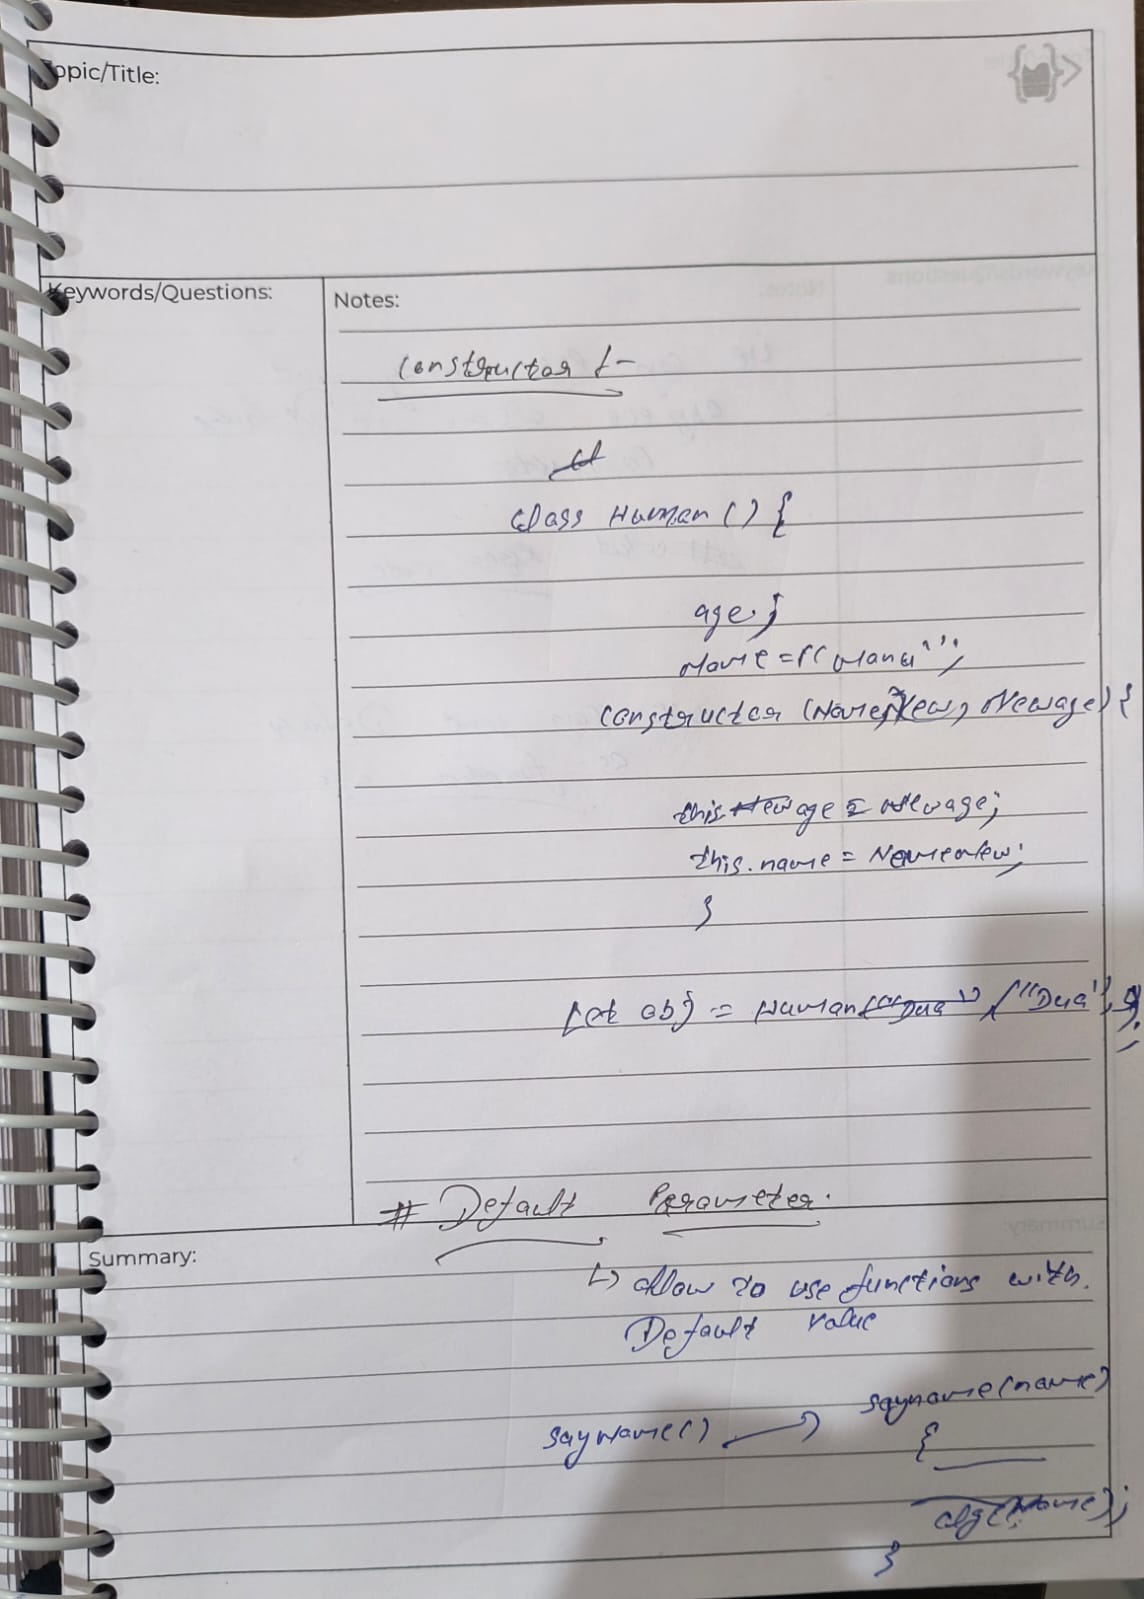 Topic/Title:
Keywords/Questions:
Notes:
Constructor :-
class Human () {
age;
Name = "Mana";
constructor (NameNew, Newage) {
this.age = Newage;
this.name = NameNew;
}
let obj = Human ("Dua",
# Default Parameter.
Summary:
↳ allow to use functions with.
Default value
sayname(name)
sayName() →
{
clg(Name);
}